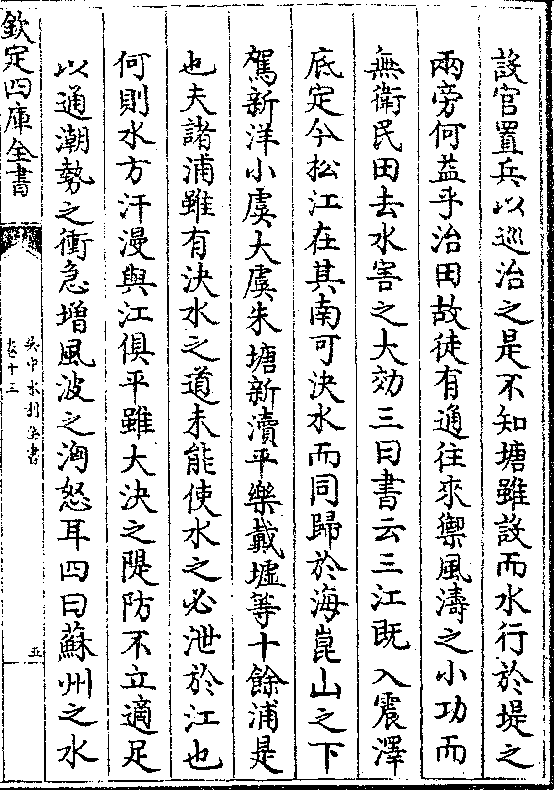 設官置兵以巡治之是不知塘雖設而水行於堤之
兩旁何益乎治田故徒有通往來禦風濤之小功而
無衛民田去水害之大効三曰書云三江既入震澤
底定今松江在其南可決水而同歸於海崑山之下
駕新洋小虞大虞朱塘新瀆平樂戴墟等十餘浦是
也夫諸浦雖有決水之道未能使水之必泄於江也
何則水方汗漫與江俱平雖大決之隄防不立適足
以通潮勢之衝急增風波之洶怒耳四曰蘇州之水
欽定四庫全書
吳中水利全書
卷十三
五